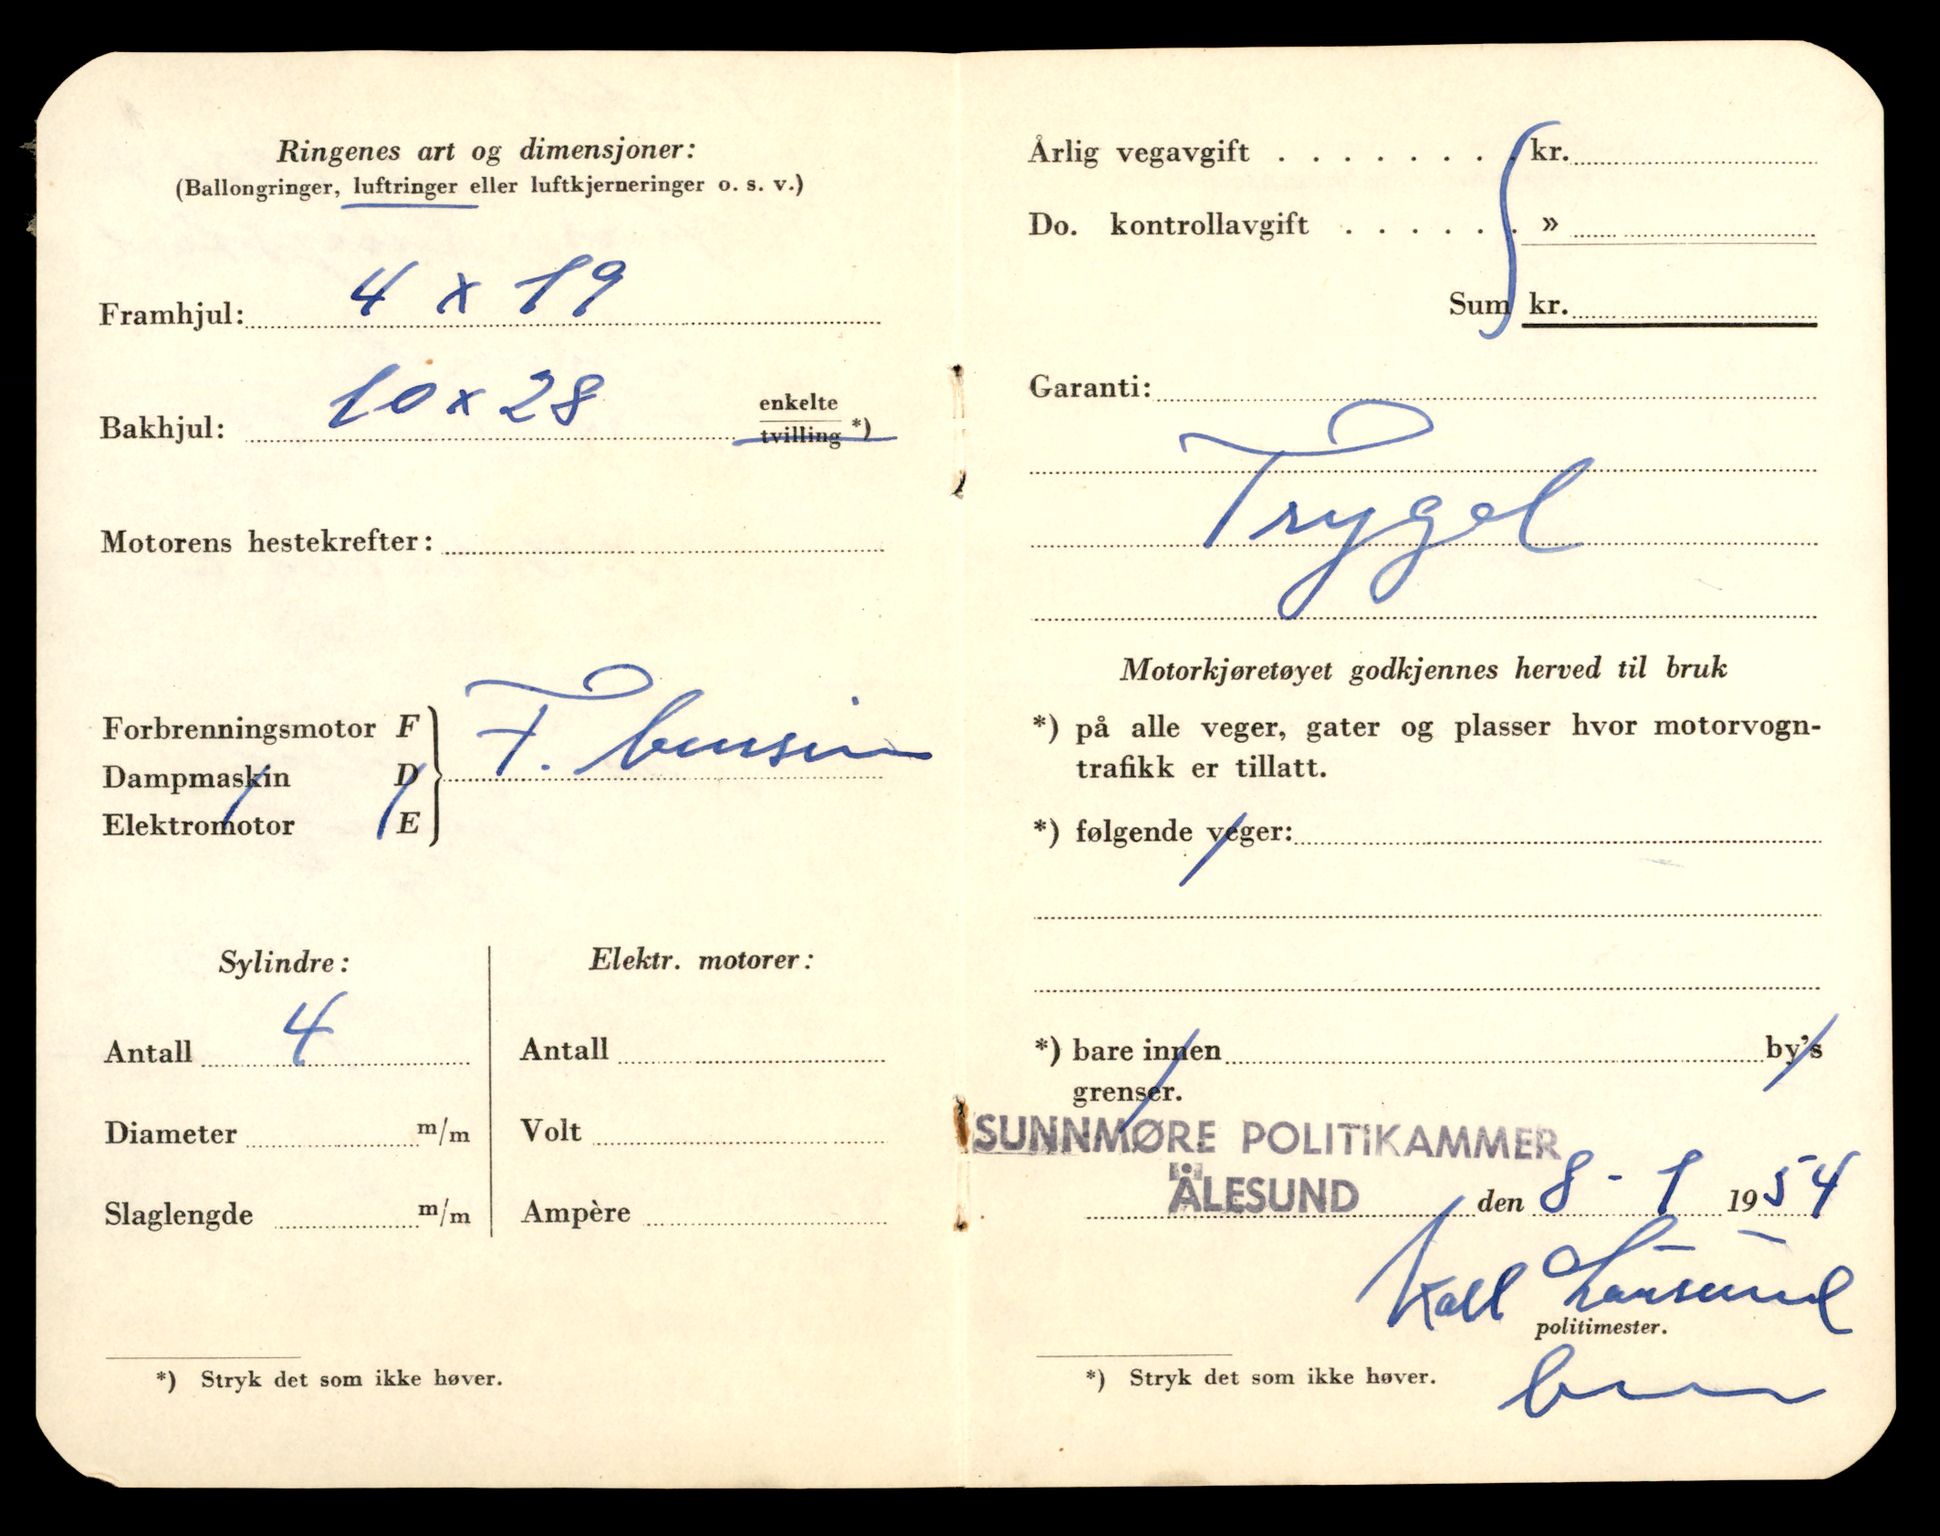 Ringenes art og dimensjoner:
(Ballongringer, luftringer eller luftkjerneringer o. s. v.)
Framhjul: 4 x 19
Bakhjul: 10 x 28 enkelte
tvilling *)
Motorens hestekrefter:
Forbrenningsmotor F
F. bensin
Dampmaskin D
Elektromotor E
Sylindre:
Antall 4
Diameter m/m
Slaglengde m/m
Elektr. motorer:
Antall
Volt
Ampère
*) Stryk det som ikke høver.
Årlig vegavgift . . . . . . . . kr.
Do. kontrollavgift . . . . . . »
Sum kr.
Garanti:
Trygd
Motorkjøretøyet godkjennes herved til bruk
*) på alle veger, gater og plasser hvor motorvogn-
trafikk er tillatt.
*) følgende veger:
*) bare innen by's
grenser.
SUNNMØRE POLITIKAMMER
ÅLESUND den 8 - 1 1954
politimester.
*) Stryk det som ikke høver.